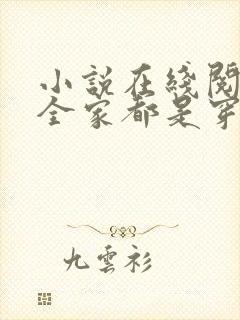 小説在綫閱
全家都是穿
九雲衫